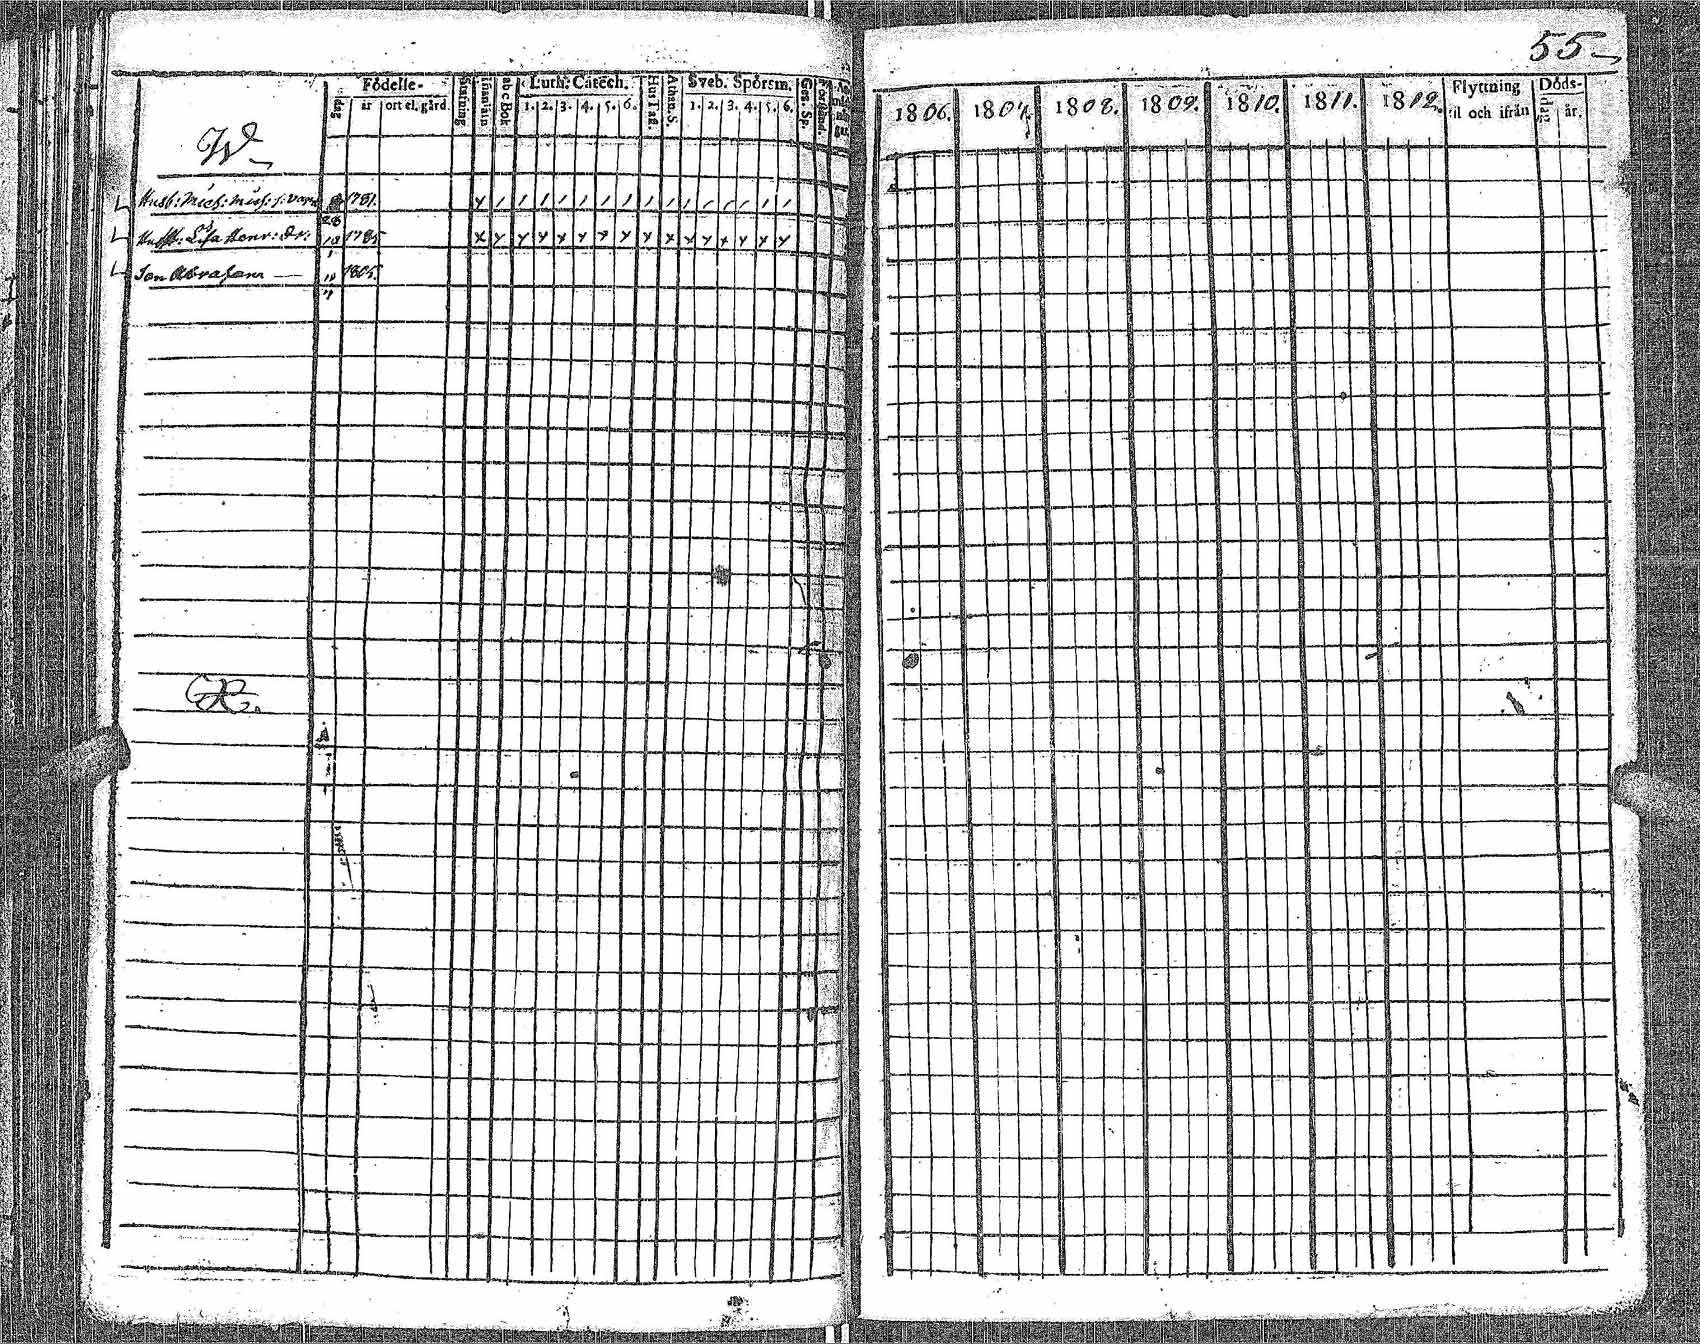 55
Födelse-
Läsning
Innantill
abc Bok
Luth: Catech.
Hus Tafl.
Athan. S.
Sveb. Spörsm.
dag
år
ort el. gård.
1. 2. 3. 4. 5. 6.
1. 2. 3. 4. 5. 6.
1806. 1807. 1808. 1809. 1810. 1811. 1812.
Flyttning
til och ifrån
Döds-
dag
år.
W
Husb: Mich: Mich: s: 1781.
28
Lisa Henr: dr: 1785
1
Son Abraham — 1805.
R.